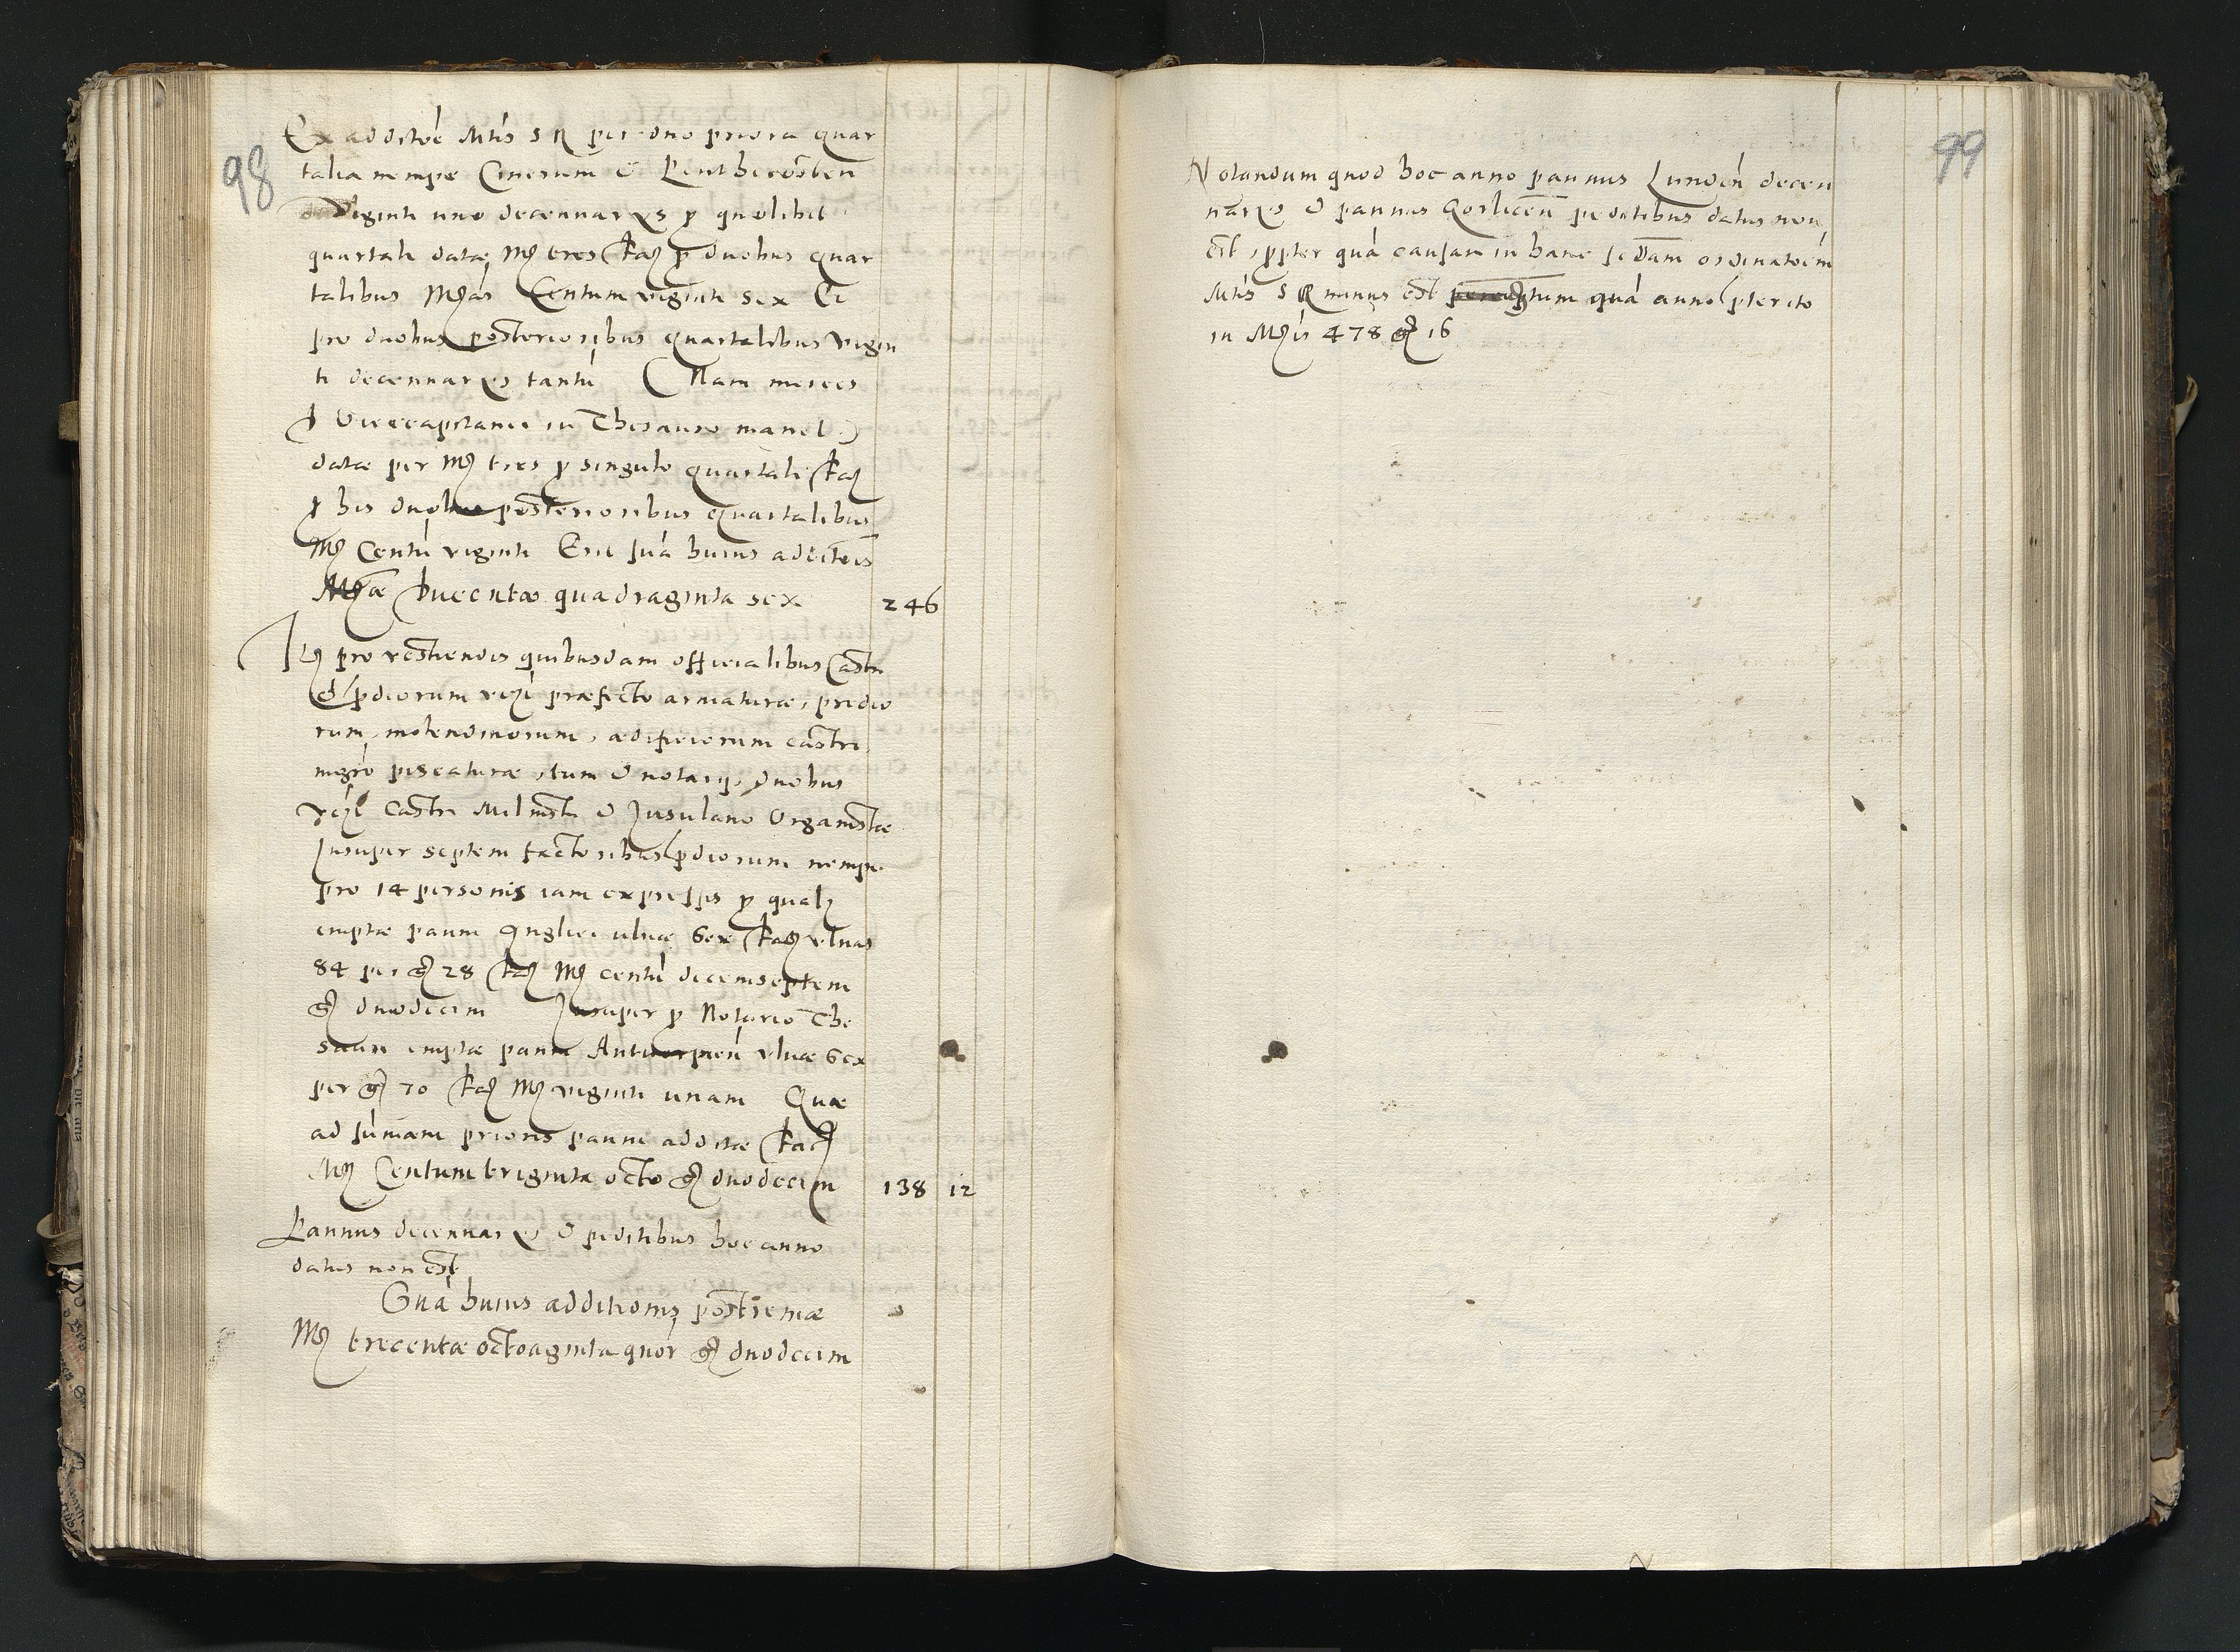 98
Ex additõe Mtis S R per duo priora quar
talia nempe Cinerum & Penthecosten
Viginti uno decennarys p quolibet
quartali datæ Mɜ tres facɜ p duobus quar
talibus Mɜas Centum viginti sex Et
pro duobus posterioribus quartalibus vigin
ti decennarys tantũ ( Nam merces
p Vicecapitanei in Thesauro manet )
datæ per Mɜ tres p singulo quartali facɜ
p his duobus posterioribus quartalibus
Mɜ Centũ viginti Erit sũa huius additõis
Mɜæ Ducentæ quadraginta sex 246
Itɜ pro vestiendis quibusdam officialibus Castri
& prdiorum vizɫ præfecto armaturæ, predio
rum, molendinorum, ædificiorum castri
mgrõ piscaturæ, tum & notarijs duobus
vizɫ Castri & Insulano Organistæ
Insuper septem factoribus prdiorum nempe
pro 14 personis iam expressis p qualɜ
emptæ panni Anglici ulnæ sex facɜ ulnas
84 per gɜ 28 facɜ Mɜ centũ decemseptem
gɜ duodecim Insuper p Notario The
sauri emptæ panni Antwerpieñ ulnæ sex
per gɜ 70 facɜ Mɜ viginti unam Quæ
ad sũmam prioris panni additæ facɜ
Mɜ Centum triginta octo gɜ duodecim 138 12
Pannus decennarys & peditibus hoc anno
datus non est
Sũa huius additionis postremæ
Mɜ trecentæ octoaginta quor gɜ duodecim
99
Notandum quod hoc anno pannus Lundeñ decen
narys & pannus Gorliceñ peditibus datus non
est, propter quã causam in hanc secdam ordinatõem
Mtis S R minus est perceptum quã anno prterito
in Mɜis 478 gɜ 16